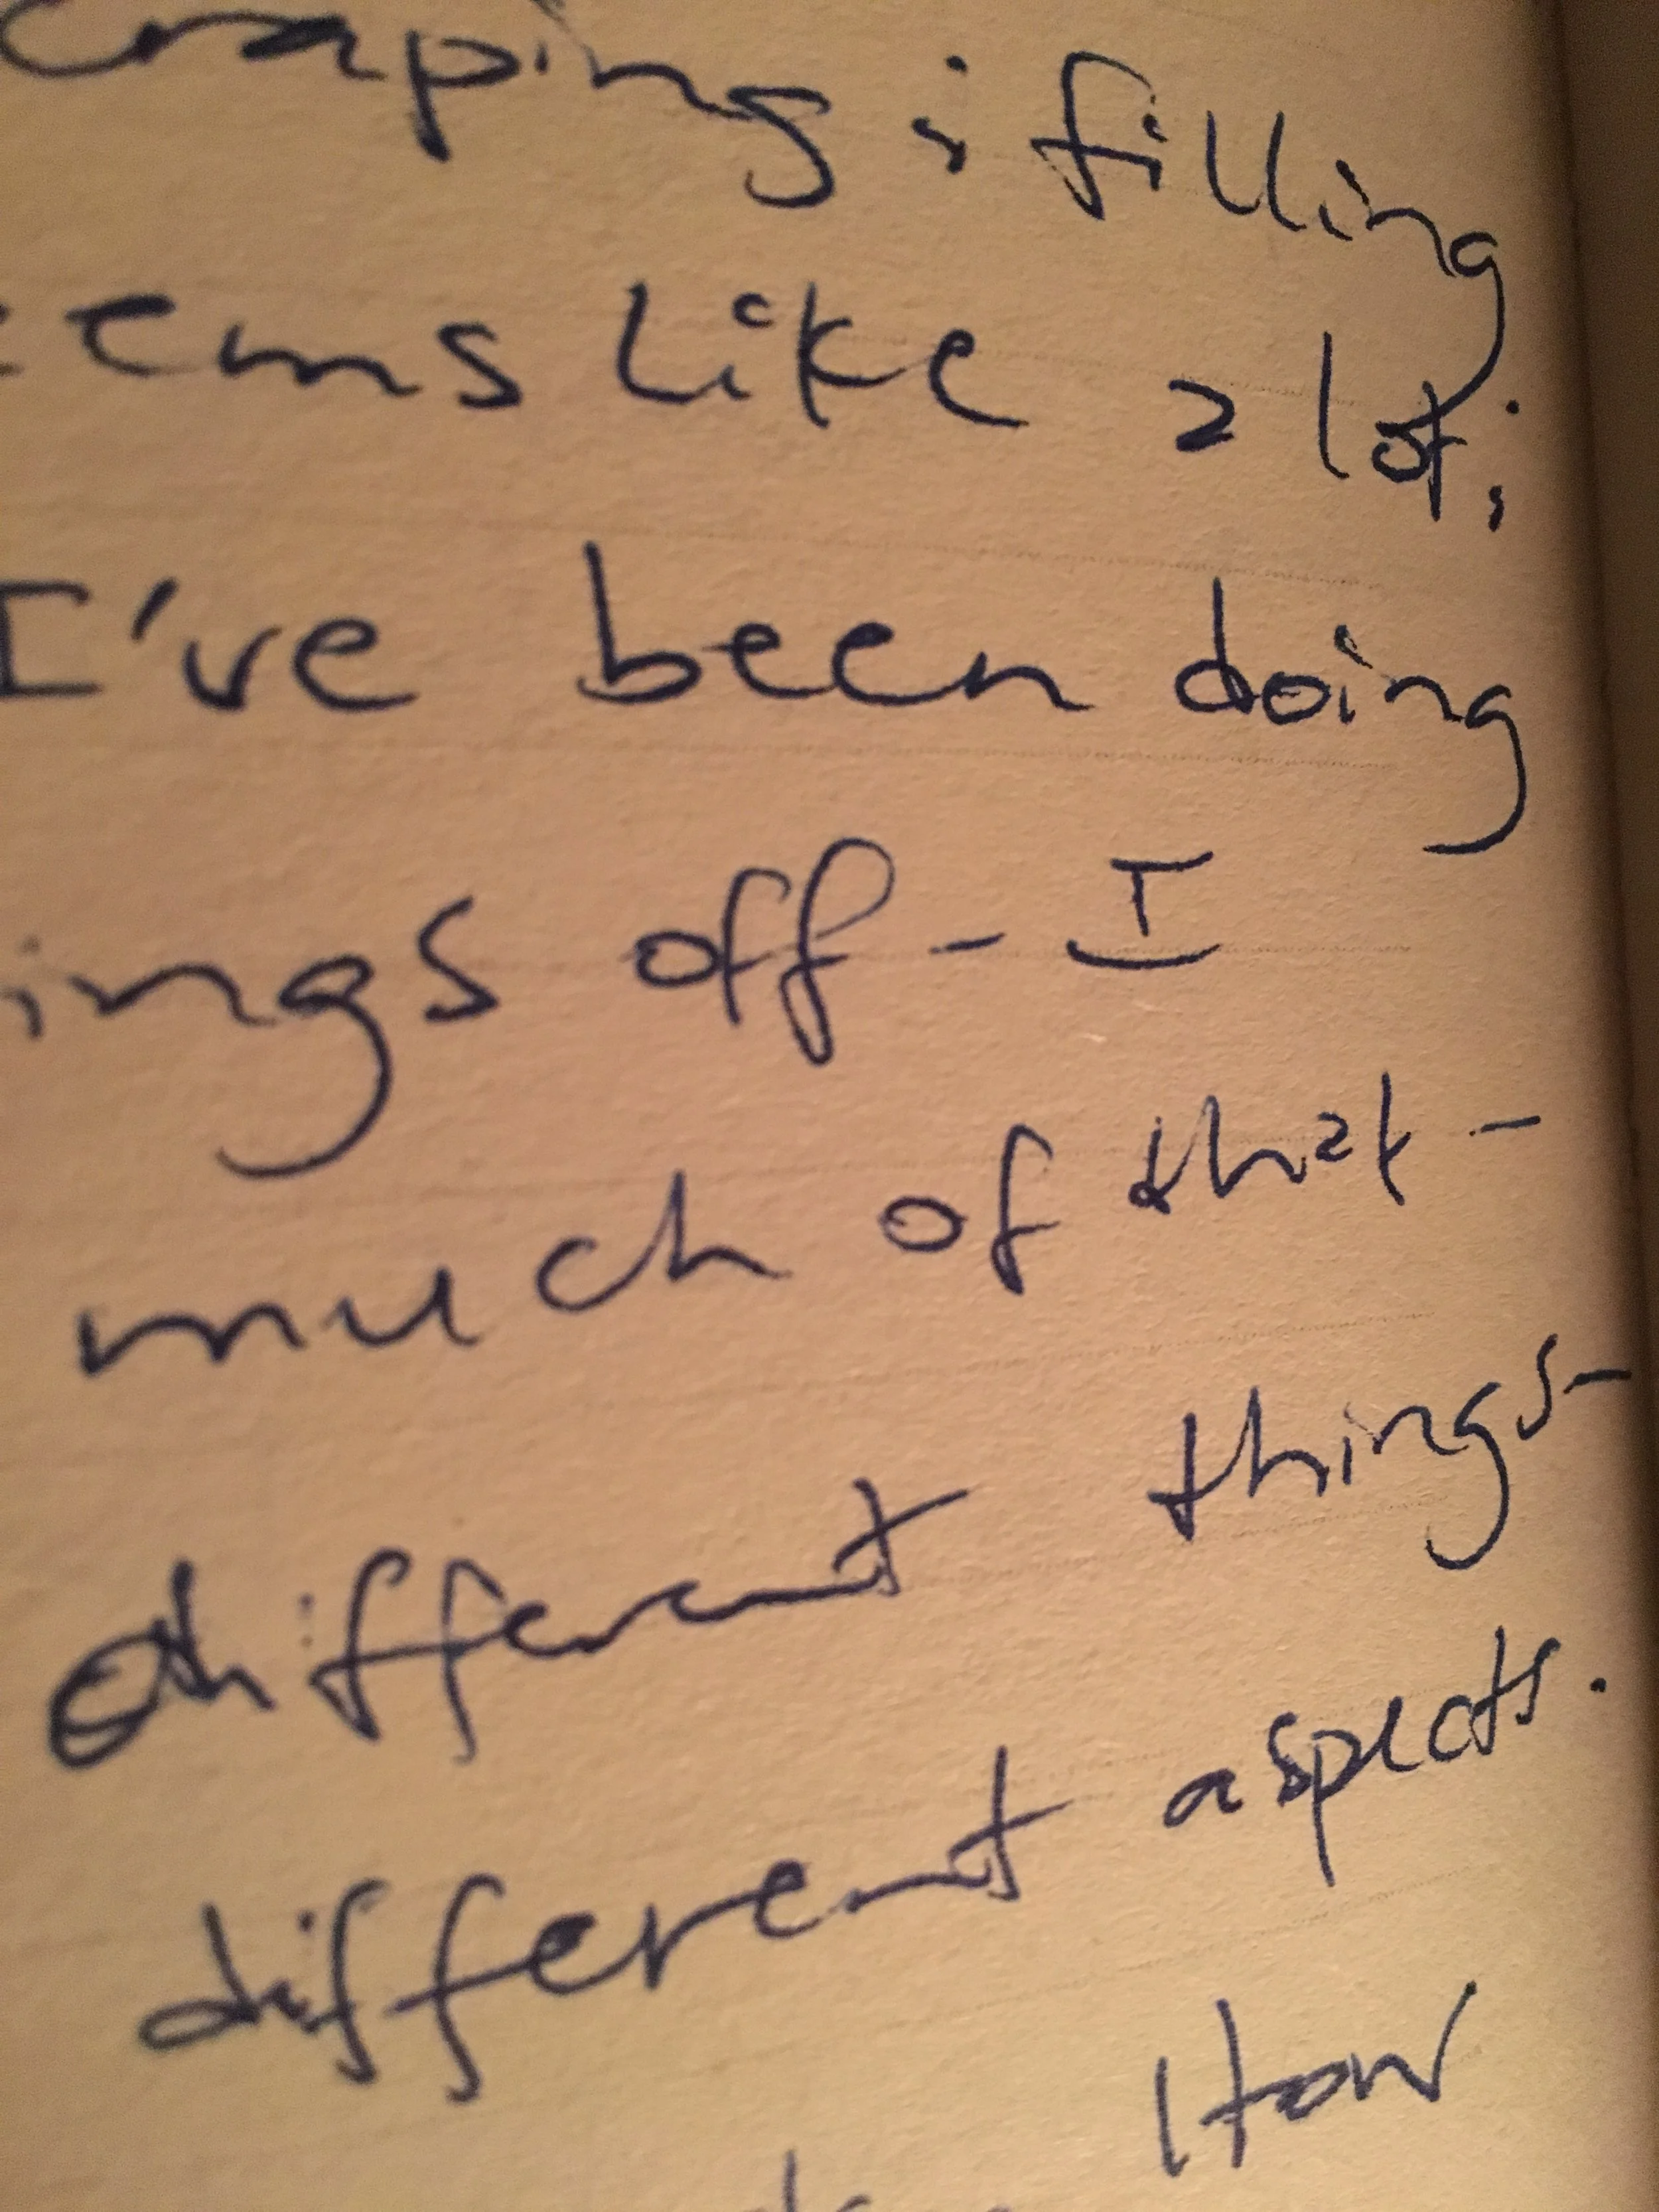 craping; filling
eems like a lot;
I've been doing
ings off - I
much of that -
different things -
different aspects.
How